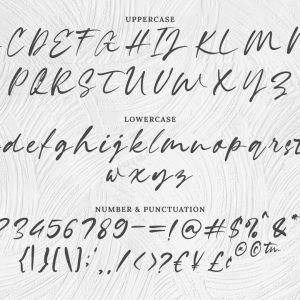 UPPERCASE
CDEFGHIJKLMN
PQRSTUVWXYZ
LOWERCASE
defghijklmnopqrst
wxyz
NUMBER & PUNCTUATION
23456789-=!@#$%^&*
{}[]\:;,./<>?€¥£¢@©tm